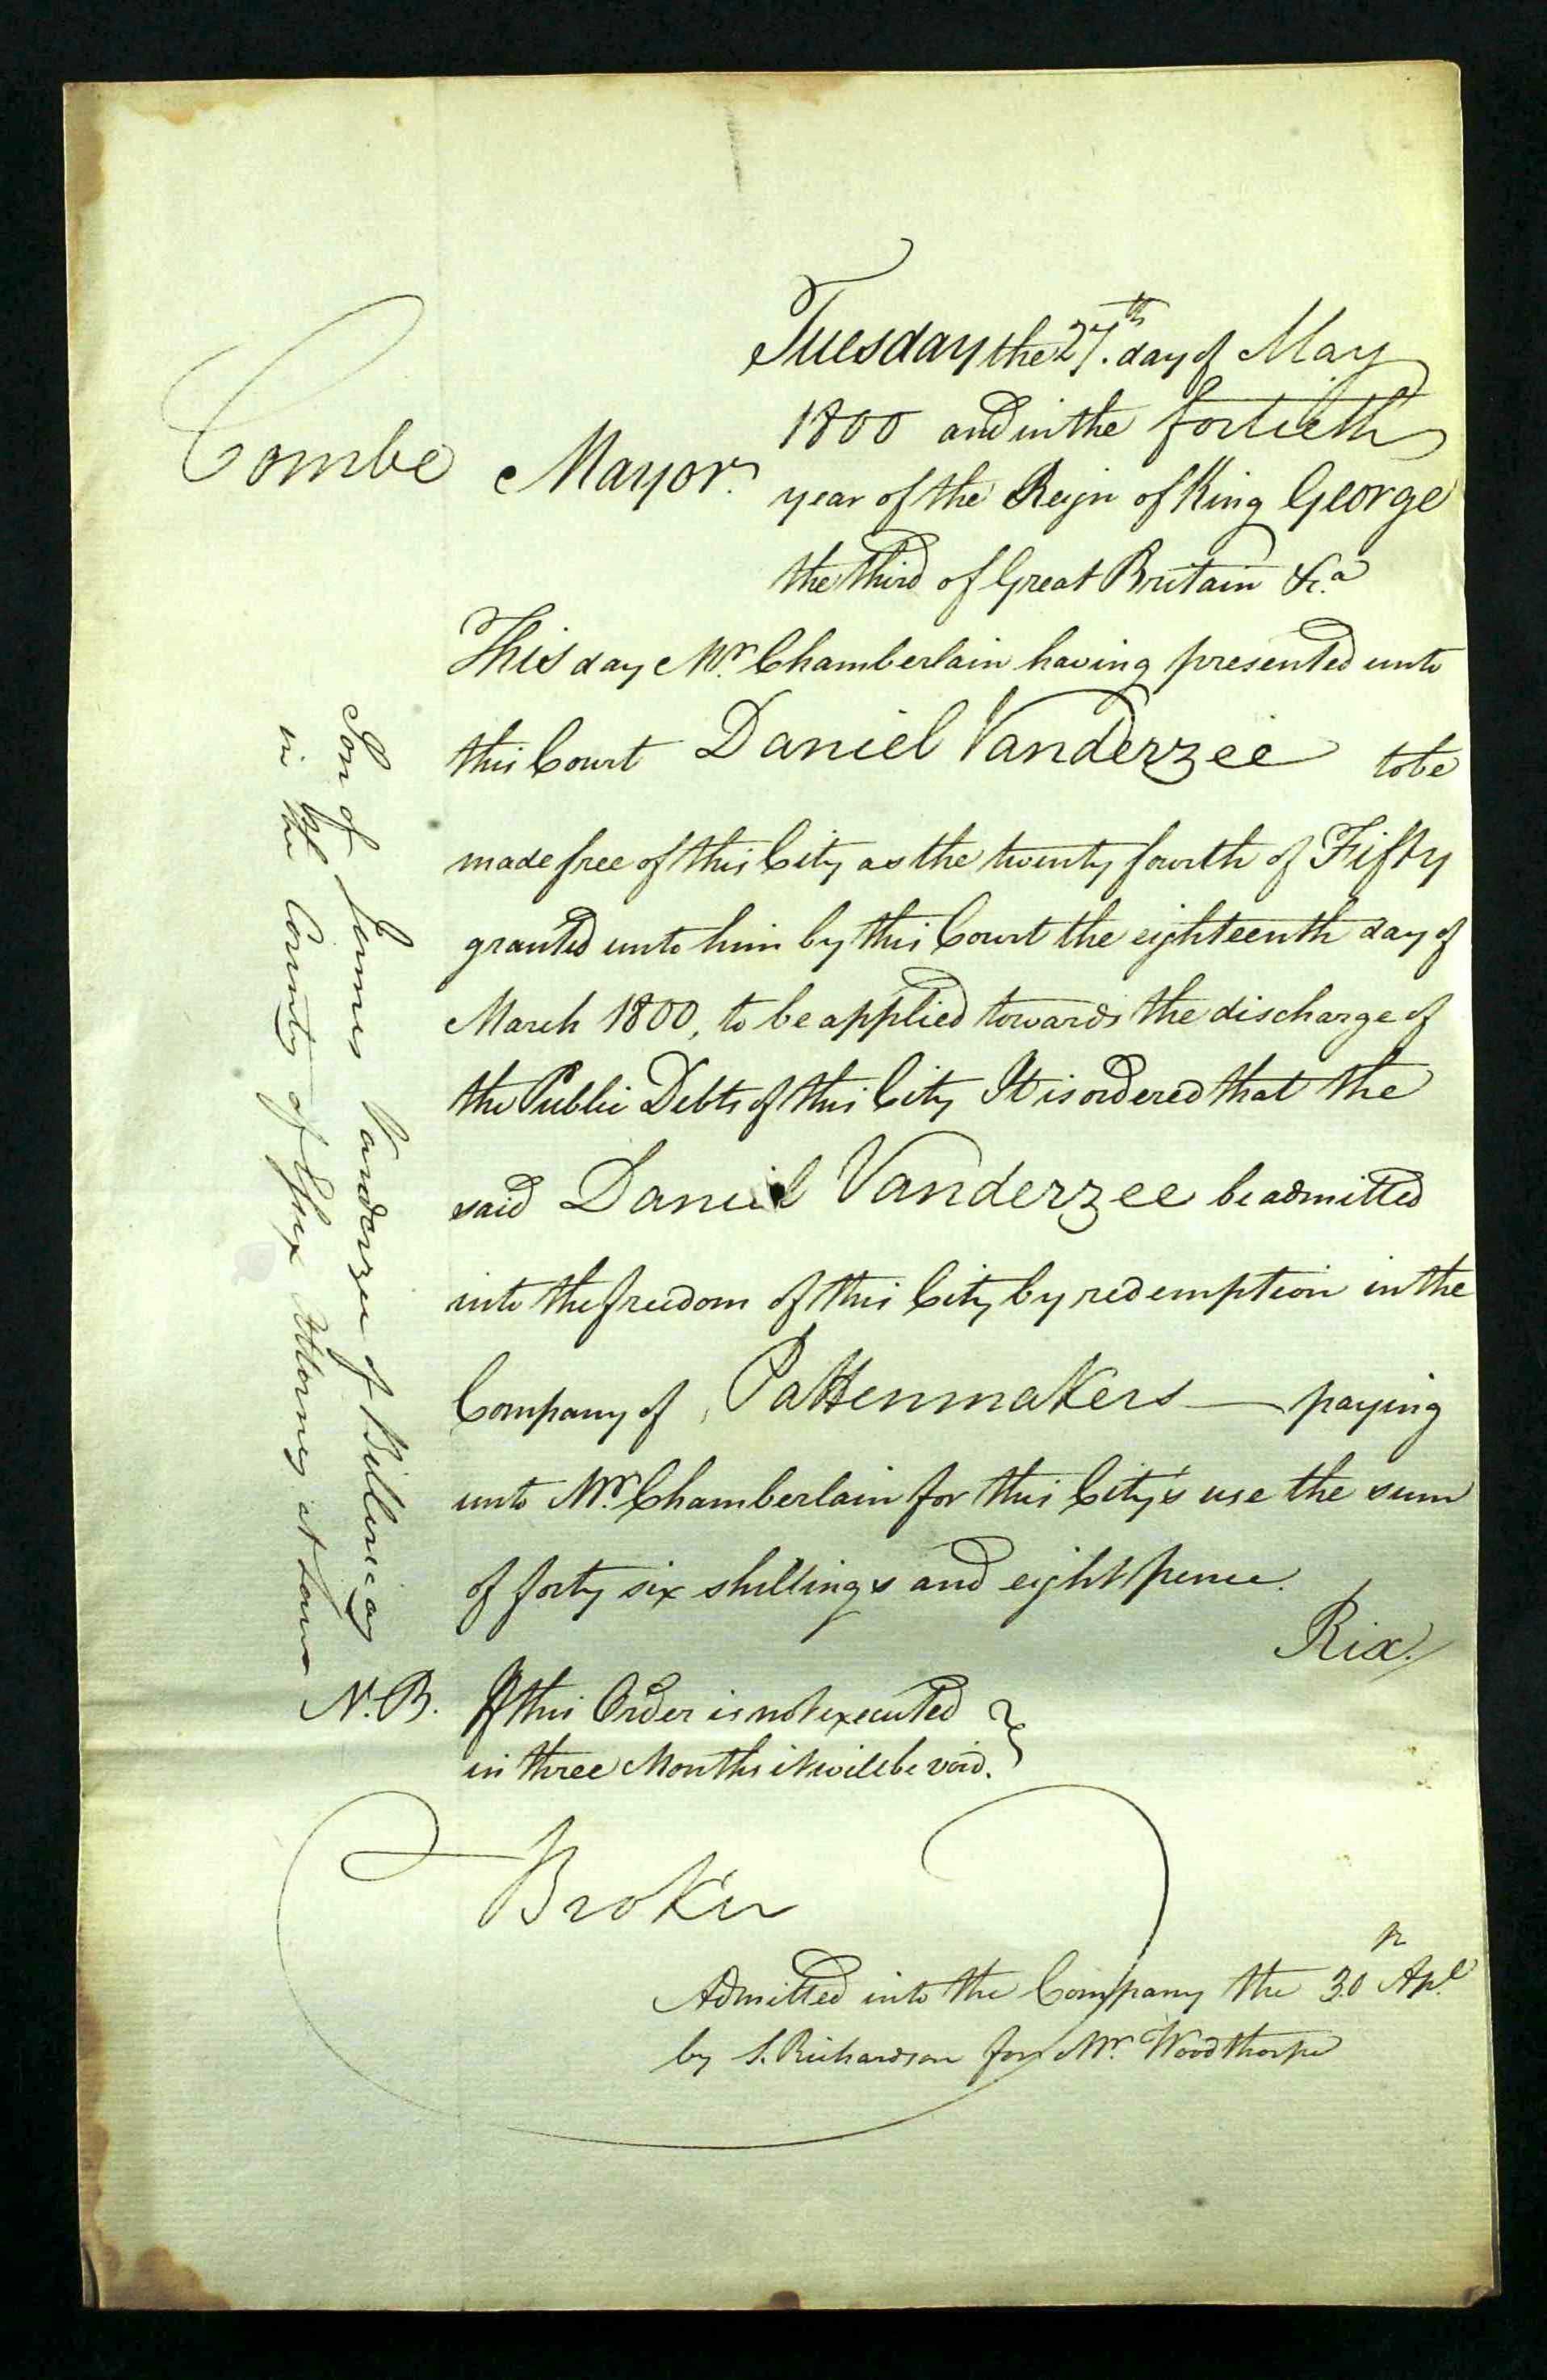 Combe Mayor.
Tuesday the 27.th day of May
1800 and in the fortieth
year of the Reign of King George
the third of Great Britain &c.a
This day Mr. Chamberlain having presented unto
this Court Daniel Vanderzee to be
made free of this City as the twenty fourth of Fifty
granted unto him by this Court the eighteenth day of
March 1800, to be applied towards the discharge of
the Public Debts of this City It is ordered that the
said Daniel Vanderzee be admitted
into the freedom of this City by redemption in the
Company of Pattenmakers — paying
unto Mr. Chamberlain for this City's use the sum
of forty six shillings and eight pence.
Rix.
N.B. If this Order is not executed
in three Months it will be void.
Son of James Vanderzee of Billericay
in the County of Essex Attorney at Law
Broker
Admitted into the Company the 30 Apl.
by S. Richardson for Mr. Woodthorpe